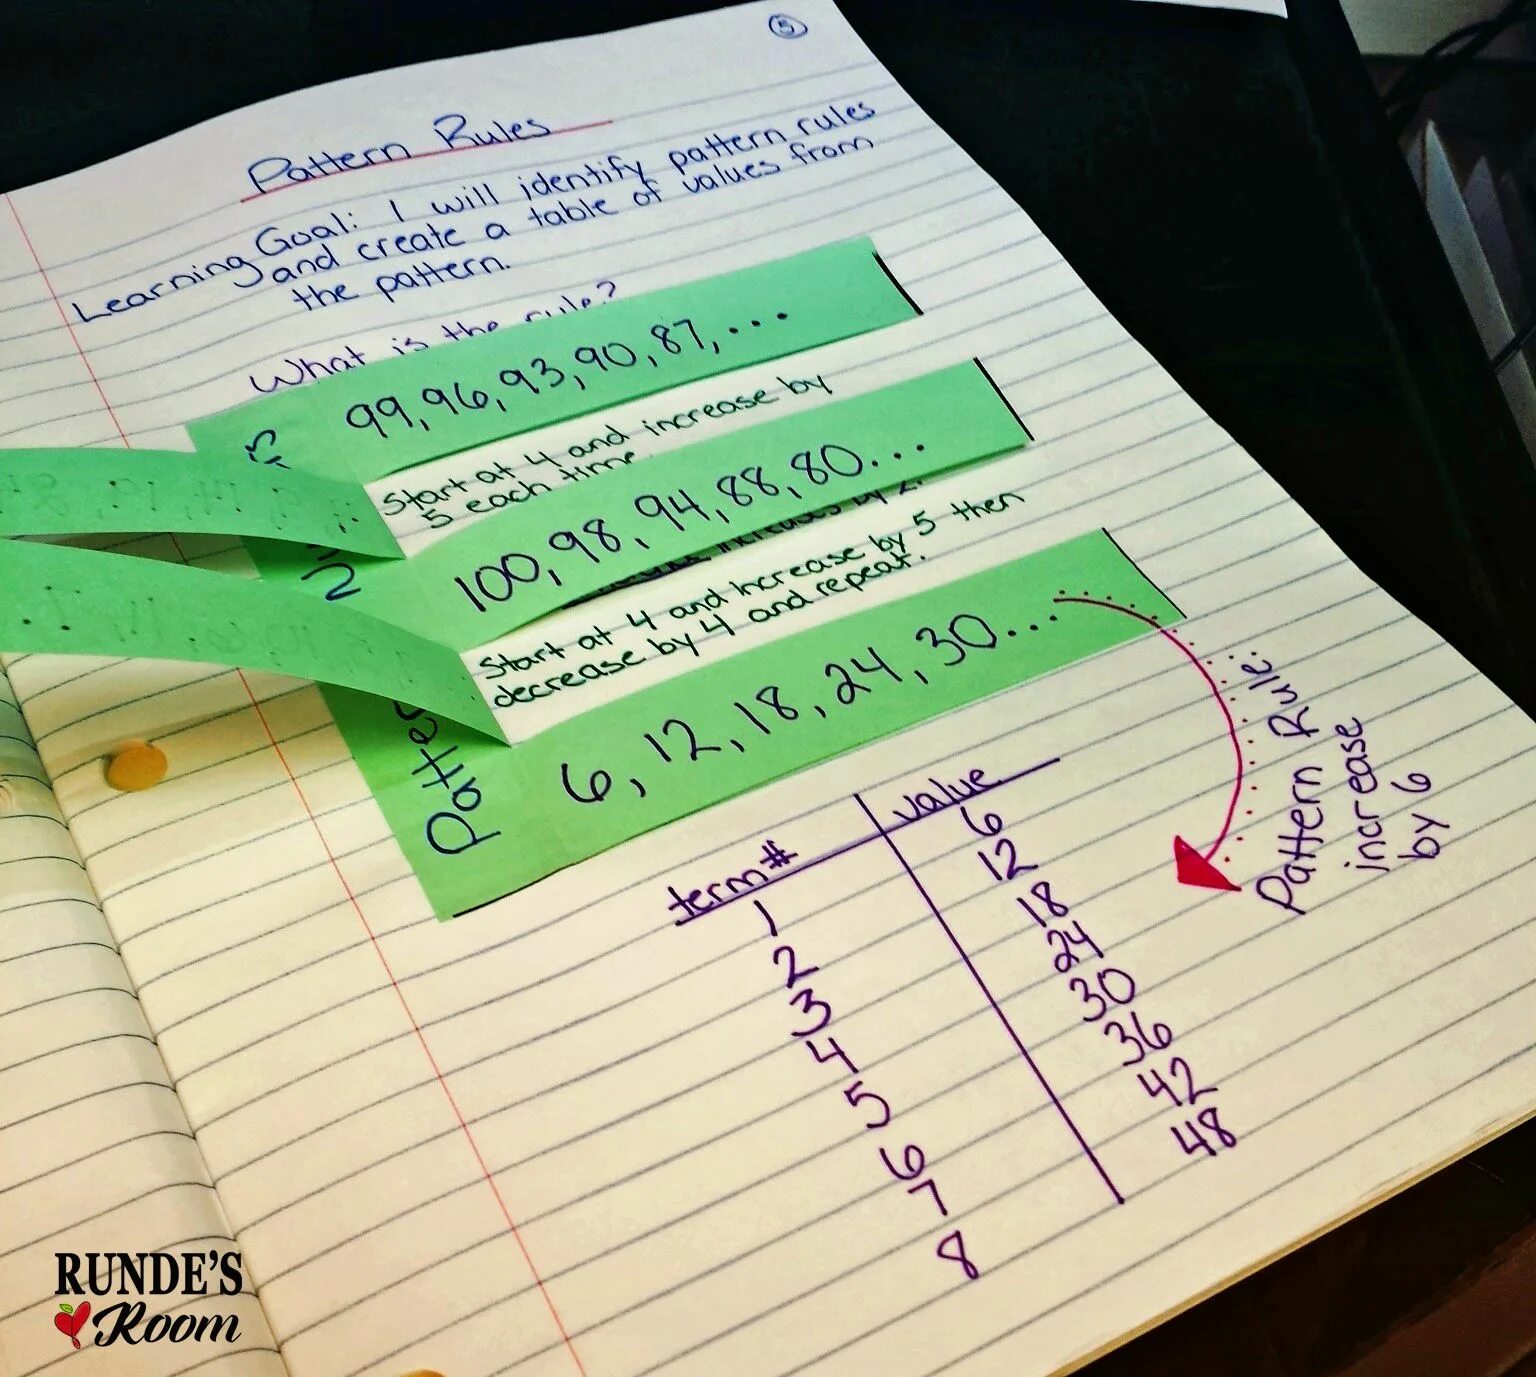 5
Pattern Rules
Learning Goal: I will identify pattern rules
and create a table of values from
the pattern.
What is the rule?
99, 96, 93, 90, 87, ...
Start at 4 and increase by
5 each time.
100, 98, 94, 88, 80...
by 2.
Start at 4 and increase by 5 then
decrease by 4 and repeat.
6, 12, 18, 24, 30...
Pattern Rule:
increase
by 6
term# value
1 6
2 12
3 18
4 24
5 30
6 36
7 42
8 48
RUNDE'S
Room